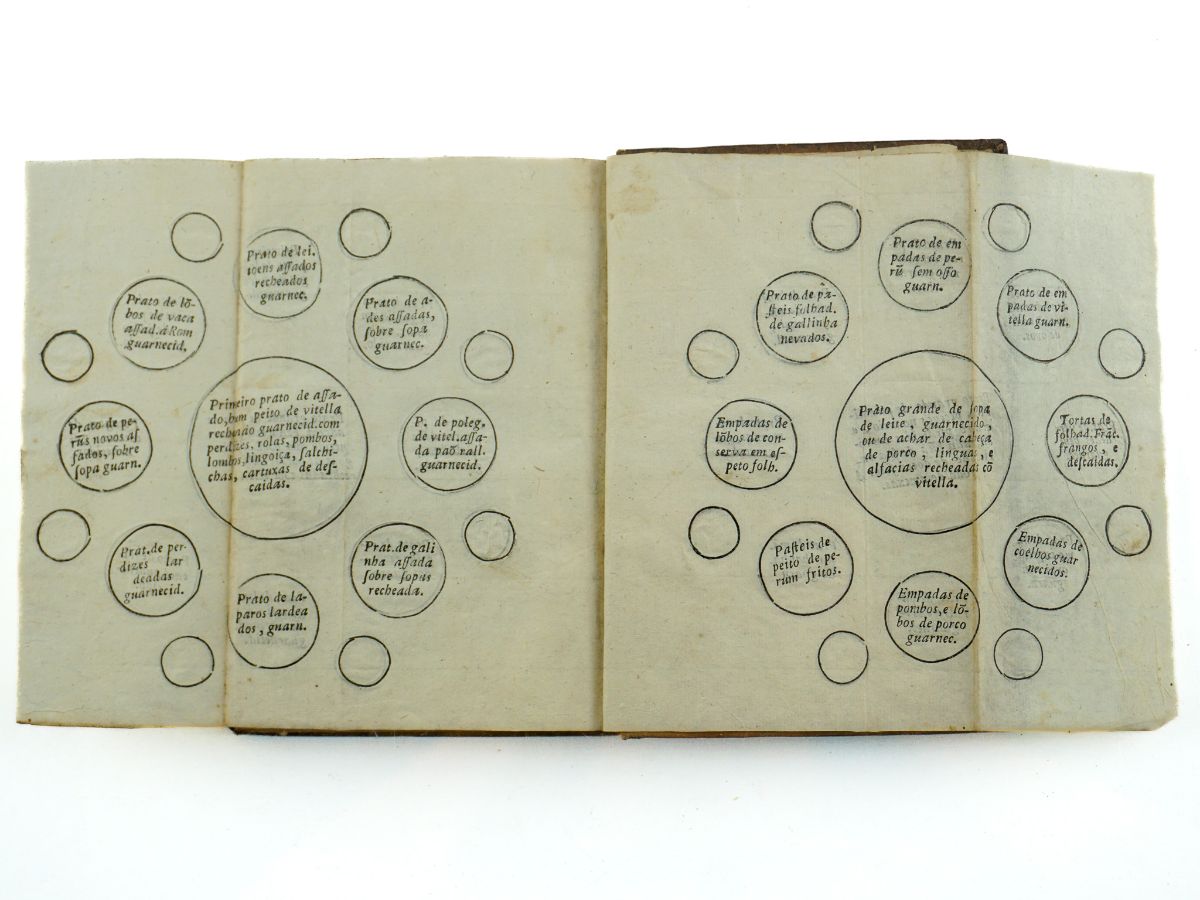 Prato de lei-
toens aſſados
recheados
guarnec.
Prato de lõ-
bos de vaca
aſſad. á Rom
guarnecid.
Prato de a-
des aſſadas,
ſobre ſopa
guarnec.
Primeiro prato de aſſa-
do, hum peito de vitella
recheado guarnecid. com
perdizes, rolas, pombos,
lombos, lingoiça, ſalchi-
chas, cartuxas de deſ-
caidas.
Prato de pe-
rũs novos aſ
ſados, ſobre
ſopa guarn.
P. de poleg.
de vitel. aſſa-
da paõ rall.
guarnecid.
Prat. de per-
dizes lar
deadas
guarnecid.
Prat. de gali
nha aſſada
ſobre ſopas
recheada.
Prato de la-
paros lardea
dos, guarn.
Prato de em
padas de pe-
rũ ſem oſſo
guarn.
Prato de pa-
ſteis folhad.
de gallinha
nevados.
Prato de em
padas de vi-
tella guarn.
Prato grande de ſopa
de leite, guarnecido,
ou de achar de cabeça
de porco, linguas, e
alfacias recheadas cõ
vitella.
Empadas de
lõbos de con-
serva em eſ-
peto folh.
Tortas de
folhad. Frãc.
frangos, e
deſcaidas.
Paſteis de
peito de pe-
rum fritos.
Empadas de
coelhos guar
necidos.
Empadas de
pombos, e lõ-
bos de porco
guarnec.